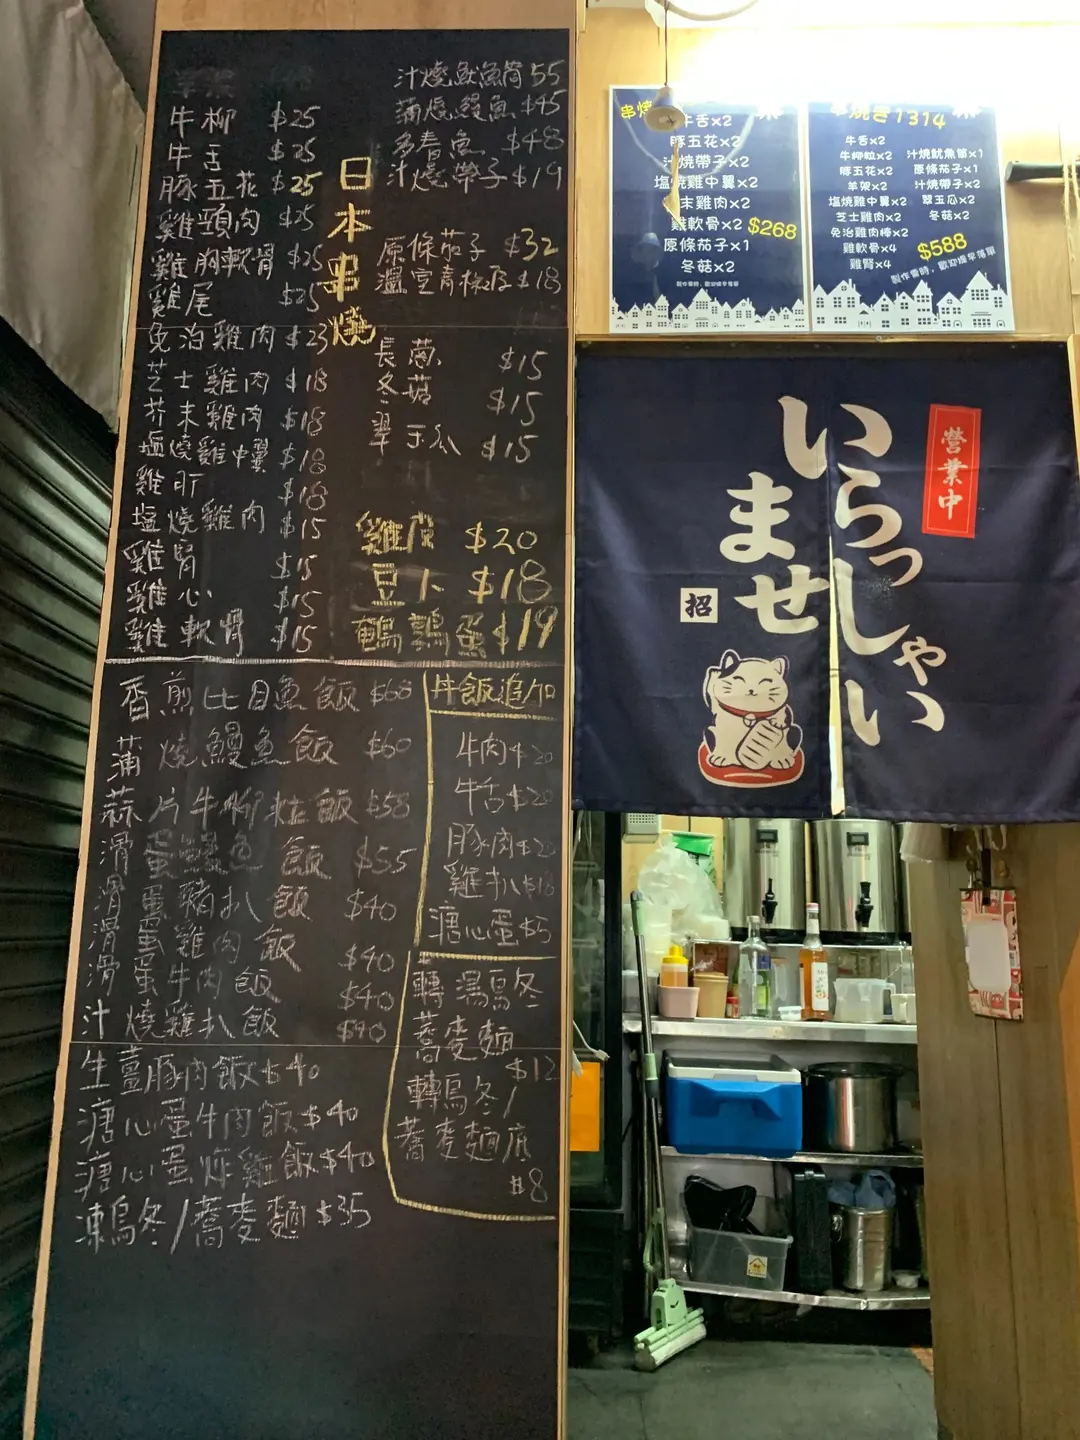 牛柳 $25
牛舌 $25
豚五花 $25
雞頸肉 $25
雞胸軟骨 $25
雞尾 $25
免治雞肉 $23
芝士雞肉 $18
芥末雞肉 $18
塩燒雞中翼 $18
雞肝 $18
塩燒雞肉 $15
雞腎 $15
雞心 $15
雞軟骨 $15
日本串燒
汁燒魷魚筒 55
蒲燒鰻魚 $45
多春魚 $48
汁燒帶子 $19
原條茄子 $32
溫室青椒 $18
長蔥 $15
冬菇 $15
翠玉瓜 $15
雞皮 $20
豆卜 $18
鵪鶉蛋 $19
香煎比目魚飯 $68
蒲燒鰻魚飯 $60
蒜片牛柳粒飯 $58
滑蛋鰻魚飯 $55
滑蛋豬扒飯 $40
滑蛋雞肉飯 $40
滑蛋牛肉飯 $40
汁燒雞扒飯 $40
生薑豚肉飯 $40
溏心蛋牛肉飯 $40
溏心蛋炸雞飯 $40
凍烏冬/蕎麥麵 $35
丼飯追加
牛肉 $20
牛舌 $20
豚肉 $20
雞扒 $18
溏心蛋 $5
轉湯烏冬
蕎麥麵
$12
轉烏冬/
蕎麥麵底
$8
串燒
牛舌x2
豚五花x2
汁燒帶子x2
塩燒雞中翼x2
末雞肉x2
雞軟骨x2
原條茄子x1
冬菇x2
$268
製作需時，歡迎提早落單
串燒き1314
牛舌x2
牛柳粒x2
豚五花x2
羊架x2
塩燒雞中翼x2
芝士雞肉x2
免治雞肉棒x2
雞軟骨x4
雞腎x4
汁燒魷魚筒x1
原條茄子x1
汁燒帶子x2
翠玉瓜x2
冬菇x2
$588
製作需時，歡迎提早落單
いらっしゃい
ませ
営業中
招